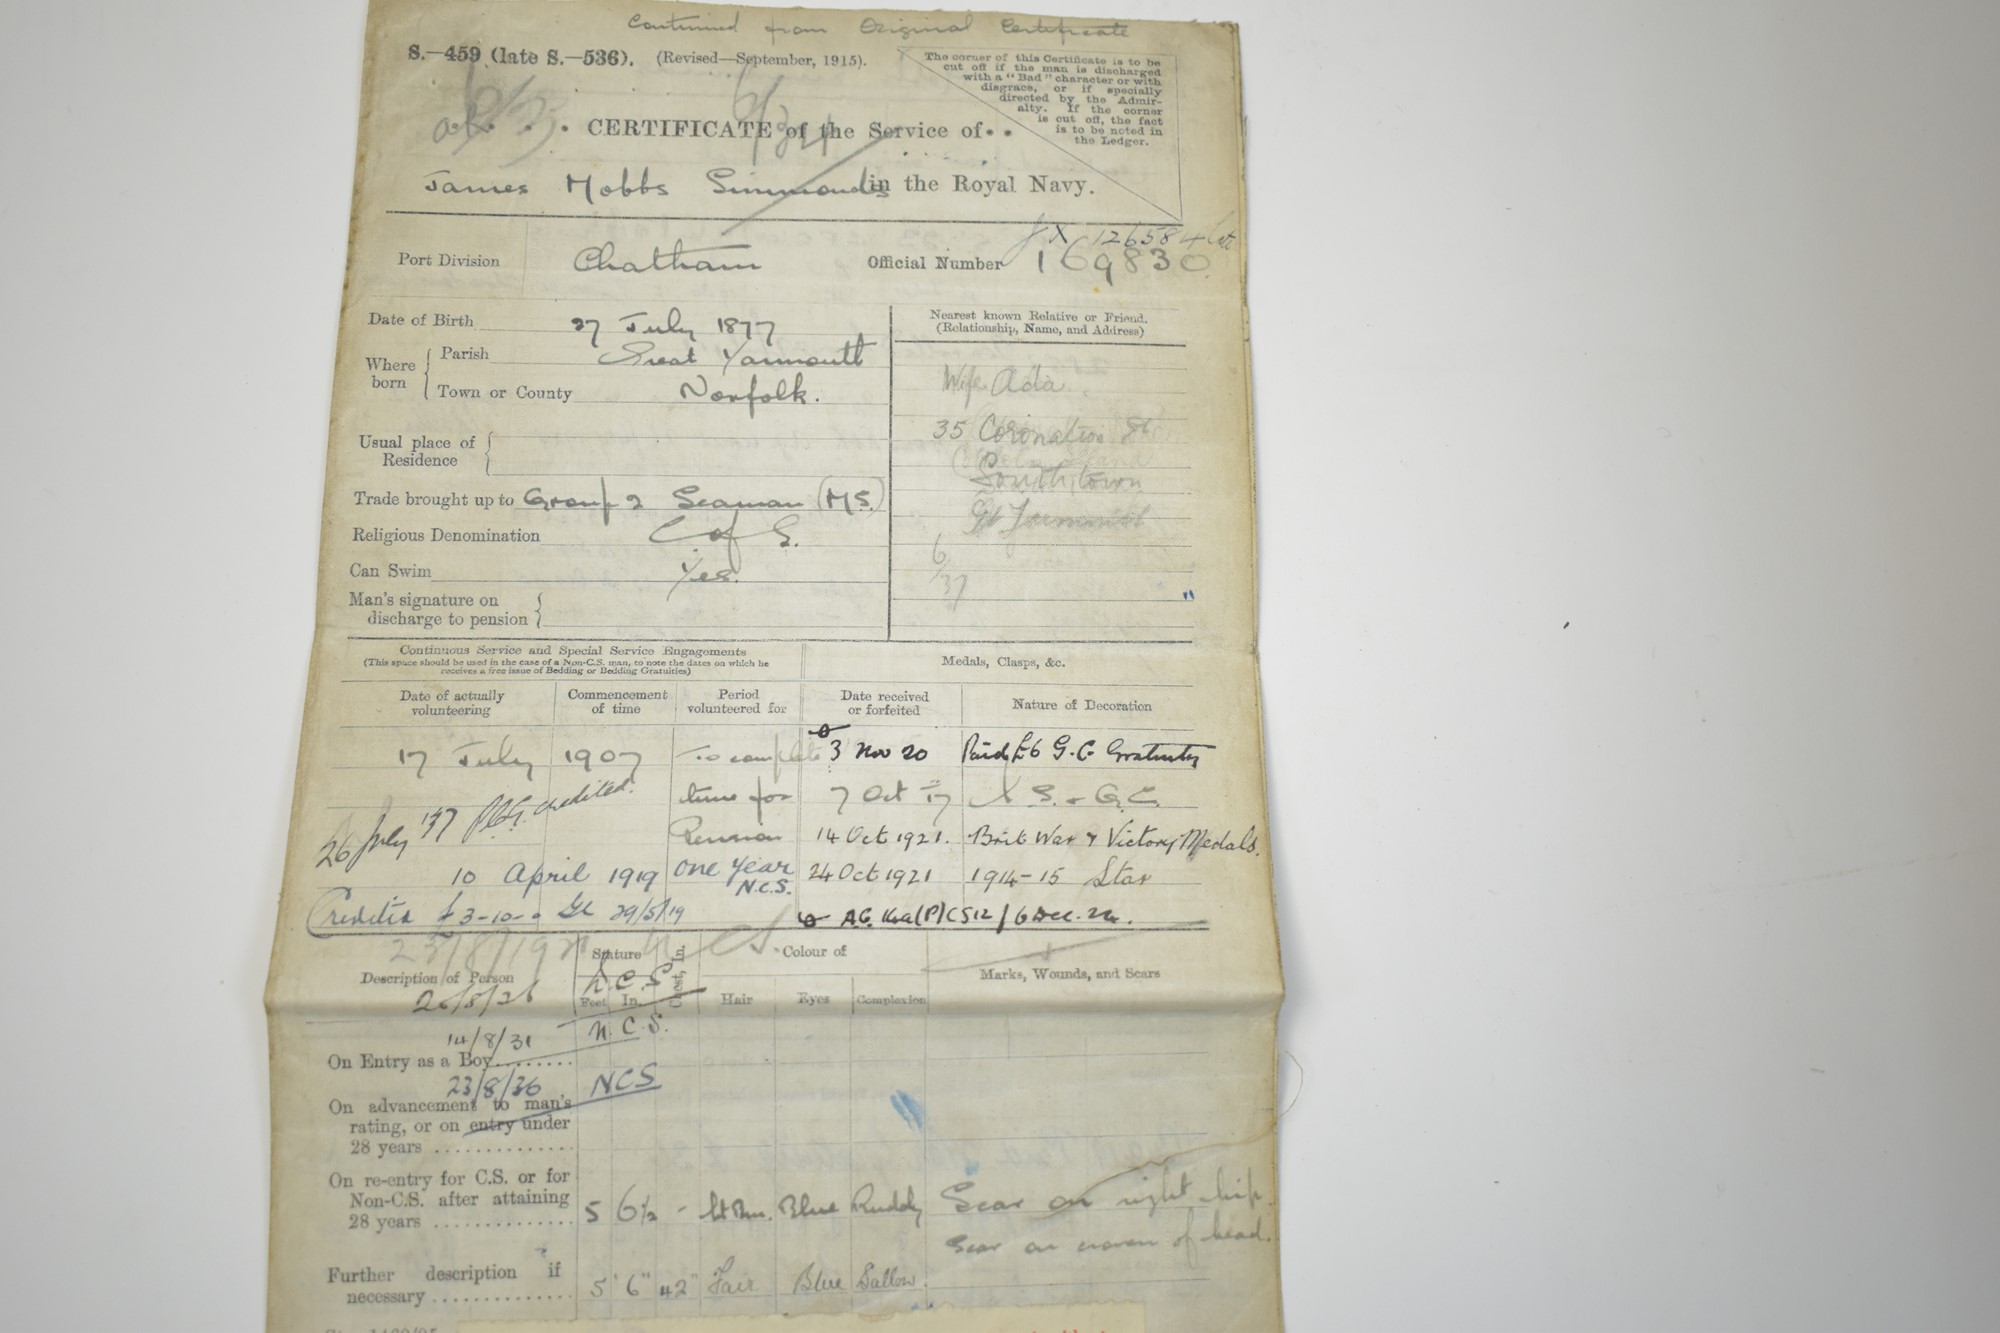 Continued from Original Certificate
S.—459 (late S.—536). (Revised—September, 1915).
The corner of this Certificate is to be
cut off if the man is discharged
with a "Bad" character or with
disgrace, or if specially
directed by the Admir-
alty. If the corner
is cut off, the fact
is to be noted in
the Ledger.
CERTIFICATE of the Service of
James Mobbs Simmonds in the Royal Navy.
JX 126584 late
Port Division Chatham Official Number 169830
Date of Birth 27 July 1877
Where born
Parish Great Yarmouth
Town or County Norfolk.
Usual place of
Residence
Trade brought up to Group 2 Seaman (MS)
Religious Denomination C of E.
Can Swim Yes.
Man's signature on
discharge to pension
Nearest known Relative or Friend.
(Relationship, Name, and Address)
Wife Ada.
35 Coronation St
Southtown
Gt Yarmouth
6/37
Continuous Service and Special Service Engagements
(This space should be used in the case of a Non-C.S. man, to note the dates on which he
receives a free issue of Bedding or Bedding Gratuities)
Medals, Clasps, &c.
Date of actually
volunteering
Commencement
of time
Period
volunteered for
Date received
or forfeited
Nature of Decoration
17 July 1907 To complete 3 Nov 20 Paid £6 G.C. Gratuity
time for 7 Oct 17 L S. & G.C.
26 July '37 credited.
Pension 14 Oct 1921. Brit War & Victory Medals.
10 April 1919 one year N.C.S. 24 Oct 1921 1914-15 Star
Credited £3-10-0 29/5/19 6 Dec.
Description of Person
Stature
Feet In.
Chest, In.
Colour of
Hair Eyes Complexion
Marks, Wounds, and Scars
26/8/26 N.C.S
14/8/31 N.C.S.
On Entry as a Boy
23/8/36 NCS
On advancement to man's
rating, or on entry under
28 years
On re-entry for C.S. or for
Non-C.S. after attaining
28 years 5 6½ - Lt Brn. Blue Ruddy Scar on right hip.
Scar on crown of head.
Further description if
necessary 5' 6" 42" Fair Blue Sallow.